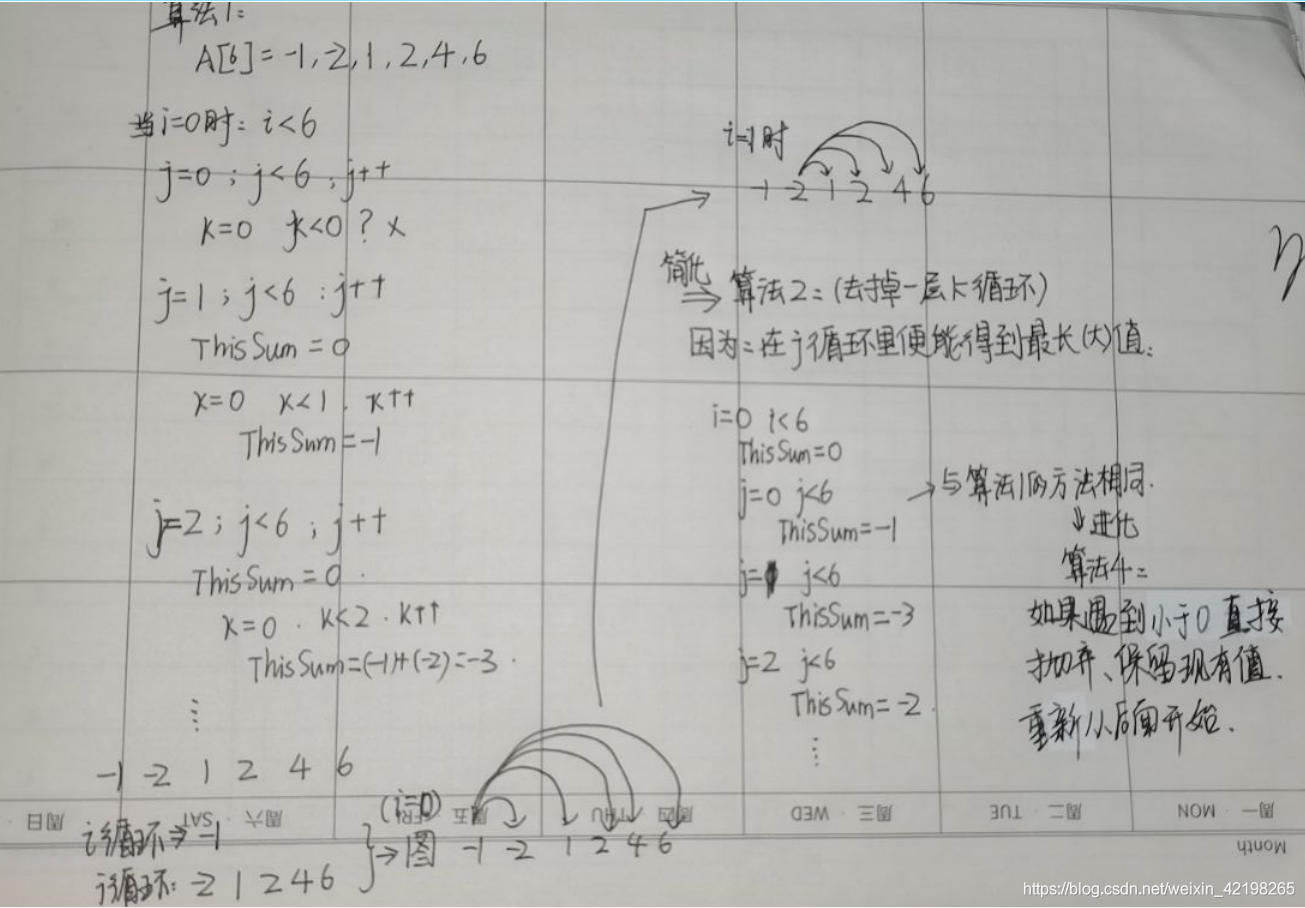 算法1:
A[6]=-1,-2,1,2,4,6
当i=0时: i<6
j=0 ; j<6 ; j++
K=0 K<0 ? ×
j=1 ; j<6 : j++
ThisSum=0
K=0 K<1 . K++
ThisSum=-1
j=2 ; j<6 ; j++
ThisSum=0 .
K=0 . K<2 . K++
ThisSum=(-1)+(-2)=-3 .
-1 -2 1 2 4 6
i循环⇒-1
j循环: -2 1 2 4 6
→图
(i=0)
-1 -2 1 2 4 6
i=1时
-1 -2 1 2 4 6
简化
⇒ 算法2:(去掉一层K循环)
因为:在j循环里便能得到最长(大)值:
i=0 i<6
ThisSum=0
j=0 j<6
ThisSum=-1
j=1 j<6
ThisSum=-3
j=2 j<6
ThisSum=-2 .
→与算法1的方法相同.
⇓进化
算法4:
如果遇到小于0直接
抛弃、保留现有值.
重新从后面开始.
周日
周六 · SAT
周五 · FRI
周四 · THU
周三 · WED
周二 · TUE
周一 · MON
Month
https://blog.csdn.net/weixin_42198265